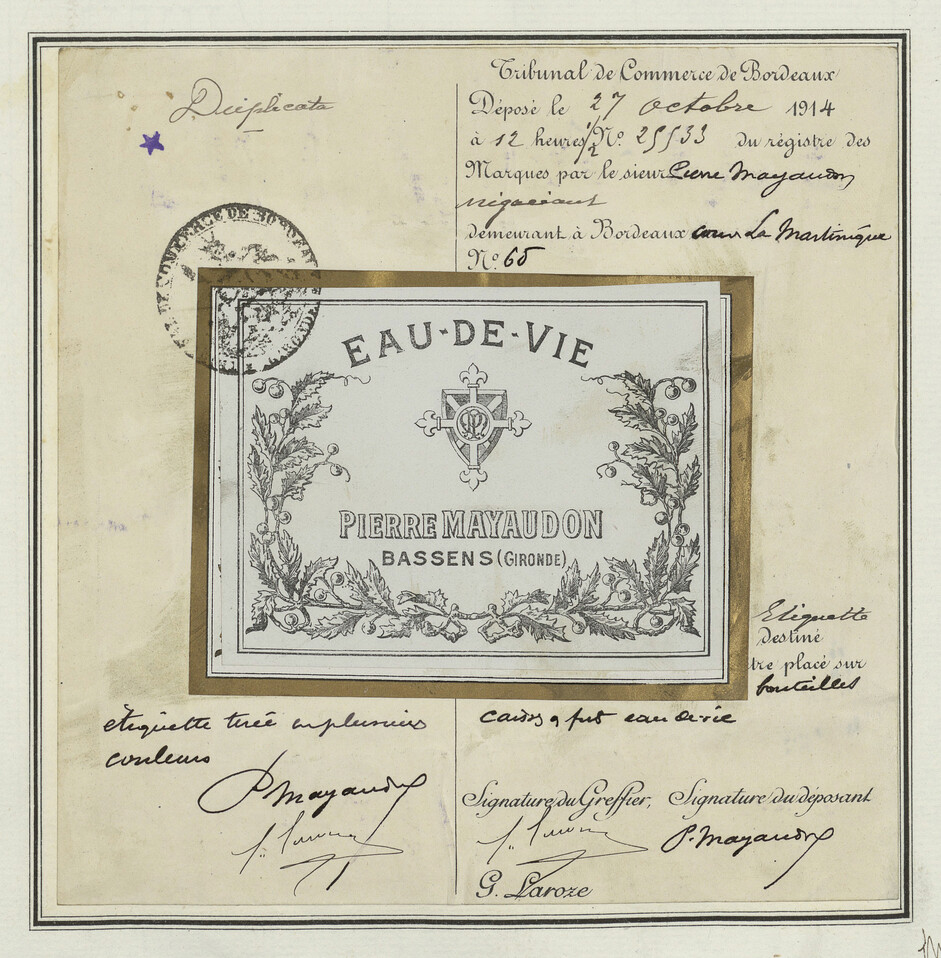 Duplicata
Tribunal de Commerce de Bordeaux
Déposé le 27 octobre 1914
à 12 heures 1/2 No. 25533 du régistre des
Marques par le sieur Pierre Mayaudon
négociant
demeurant à Bordeaux cours La Martinique
No. 66
EAU-DE-VIE
PIERRE MAYAUDON
BASSENS (GIRONDE)
Etiquette
destiné
tre placé sur
bouteilles
caisses & fut eau de vie
étiquette tirée en plusieurs
couleurs
P. Mayaudon
Signature du Greffier, Signature du déposant
P. Mayaudon
G. Laroze